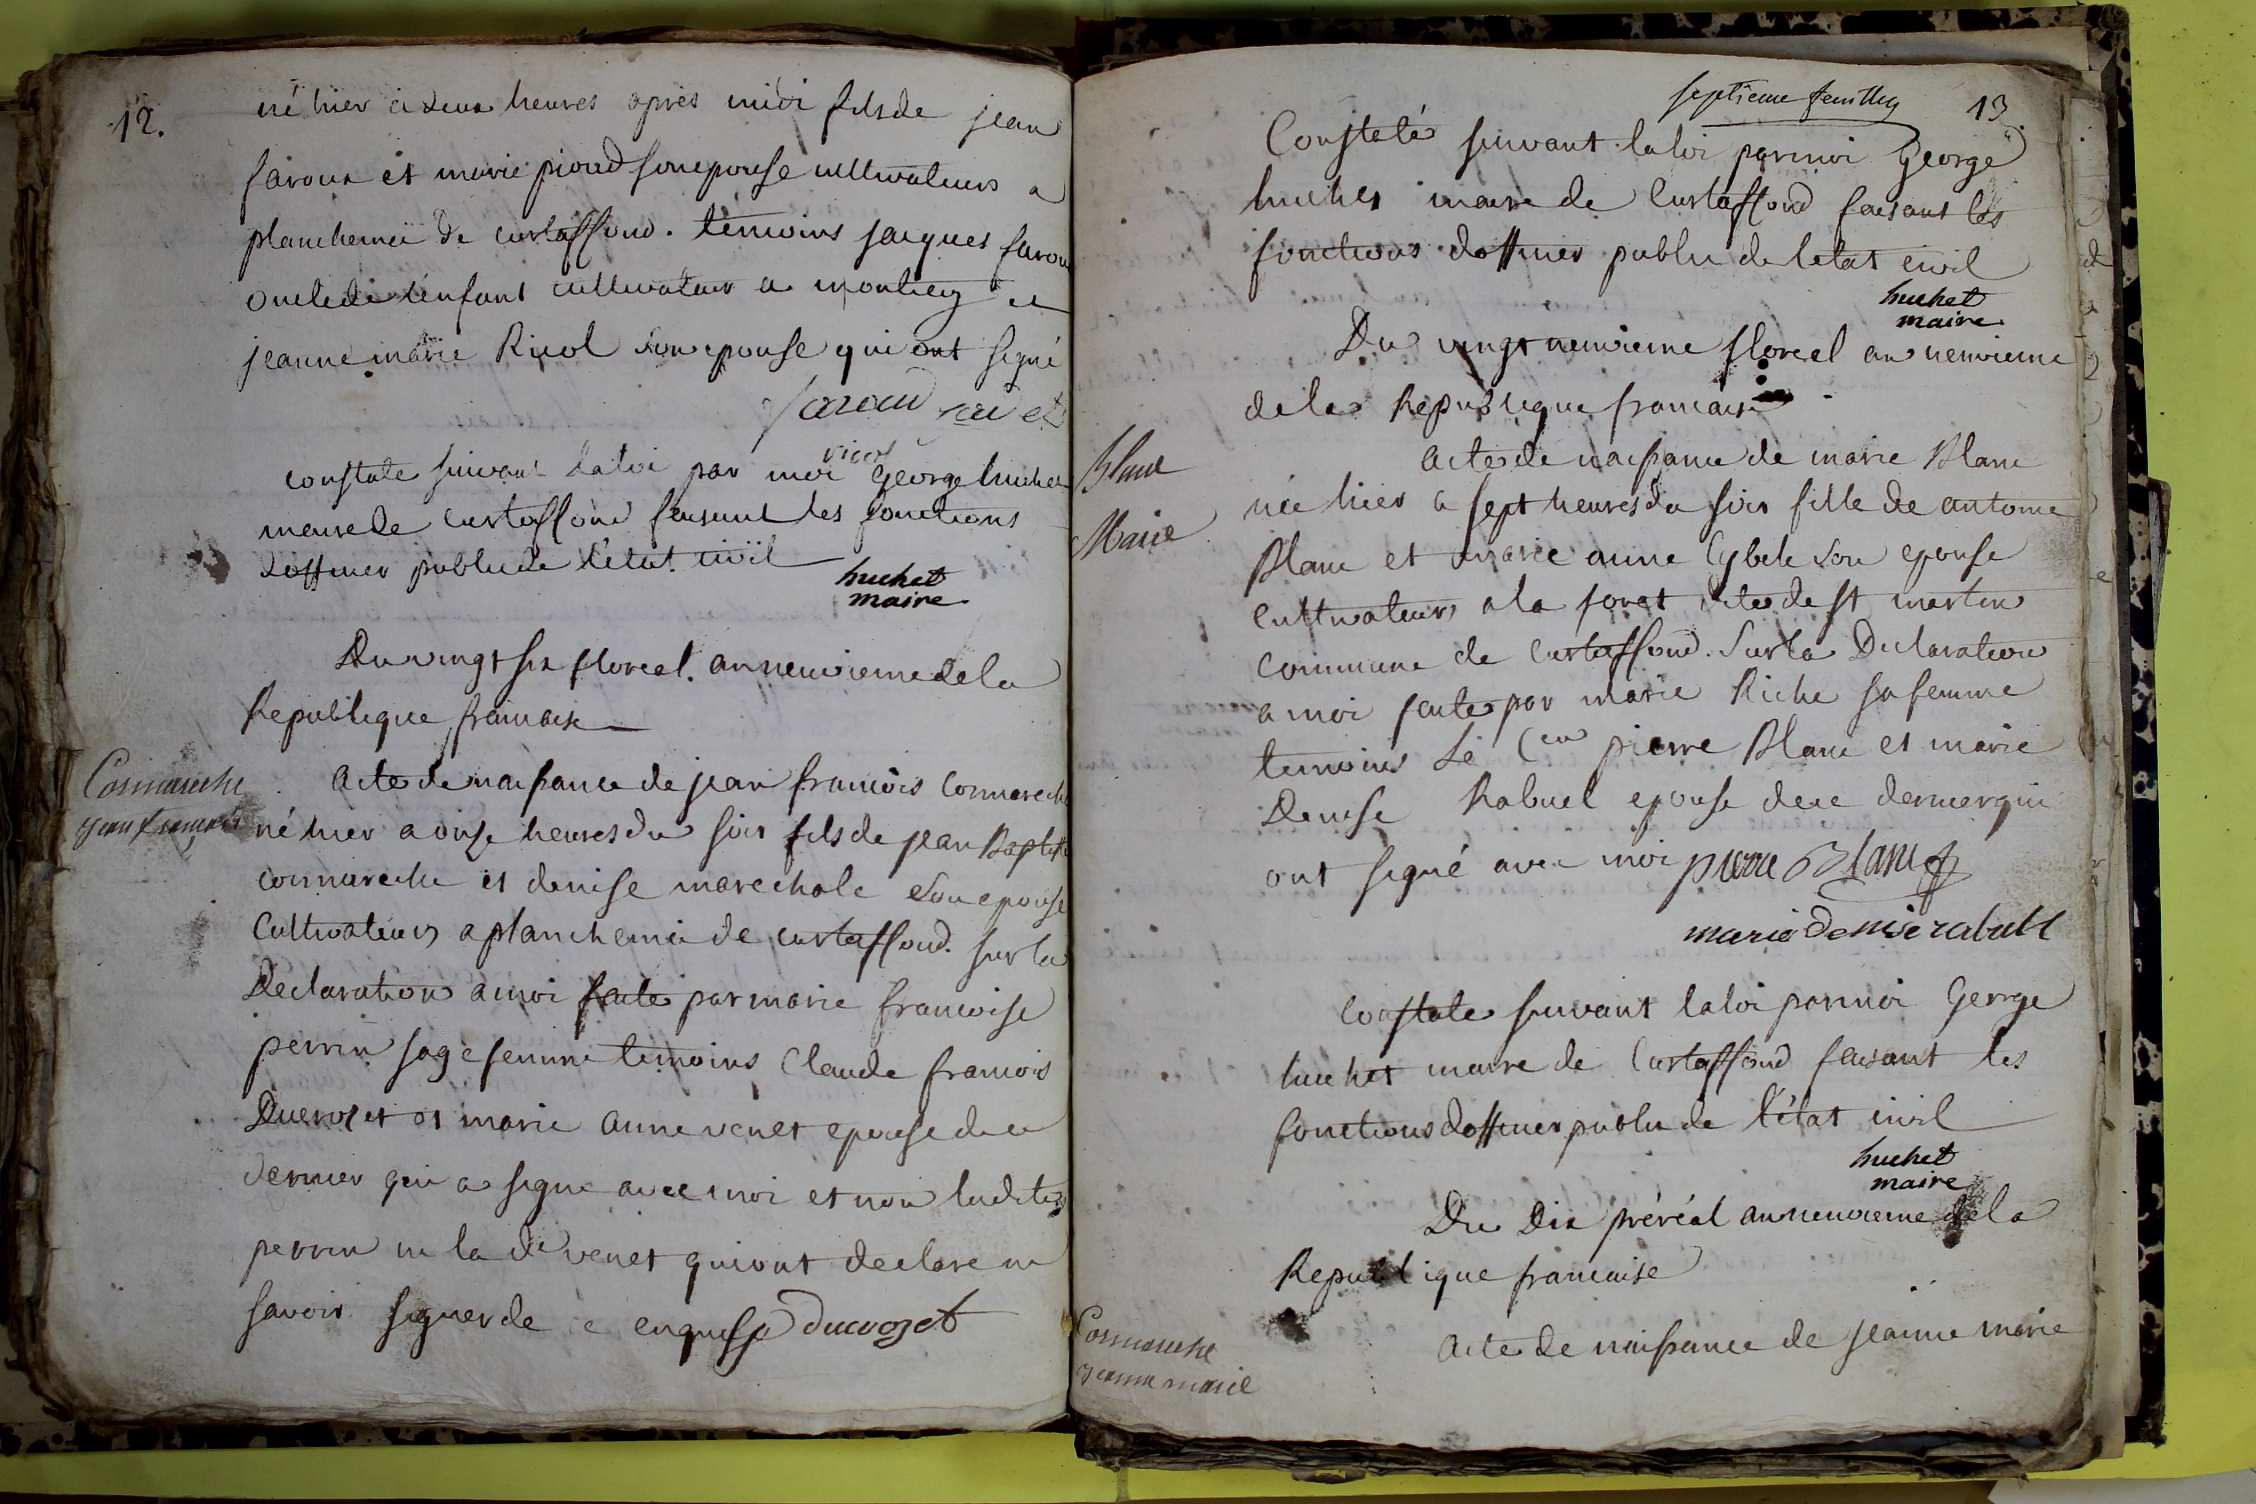 12.
né hier a deux heures après midi fils de jean
faroux et marie pioud son epouse cultivateurs a
planchemei de curtaffond. temoins jacques farou
oncle de l'enfant cultivateur a montiey et
jeanne marie Ricol son epouse qui ont signé
faroud
ricol
constate suivant la loi par moi George huchet
maire de Curtaffond faisant les fonctions
dofficier public de l'état. civil
huchet
maire
Du vingt six floreal. an neuvieme de la
Republique francaise
Cormareche
jean francois
acte de naissance de jean francois Cormareche
né hier a onze heures du soir fils de jean Baptiste
cormareche et denise marechale son epouse
Cultivateurs a planchemei de curtaffond. sur la
Declaration a moi faite par marie francoise
perrin sage femme temoins Claude francois
Ducrozet et marie anne venet epouse de ce
dernier qui a signé avec moi et non ladite
perrin ni la de venet qui ont declare ne
savoir signer de ce enquis ducrozet
septieme feuillet 13
Constaté suivant la loi par moi George
huchet maire de Curtaffond faisant les
fonctions dofficier public de letat civil
huchet
maire
Du vingt neuvieme floreal an neuvieme
de la Republique francaise
Blanc
Marie
acte de naissance de marie Blanc
née hier a sept heures du soir fille de antoine
Blanc et marie anne Cybele son epouse
Cultivateurs a la foret de st martin
commune de Curtaffond. Sur la Declaration
a moi faite par marie Riche sa femme
temoins Le Cen pierre Blanc et marie
Denise Rabuel epouse de ce dernier qui
ont signé avec moi pierre Blanc
marie denise rabuel
Constate suivant la loi par moi George
huchet maire de Curtaffond faisant les
fonctions dofficier public de l'état civil
huchet
maire
Du Dix préréal an neuvieme de la
Republique francaise
Cormareche
jeanne marie
acte de naissance de jeanne marie